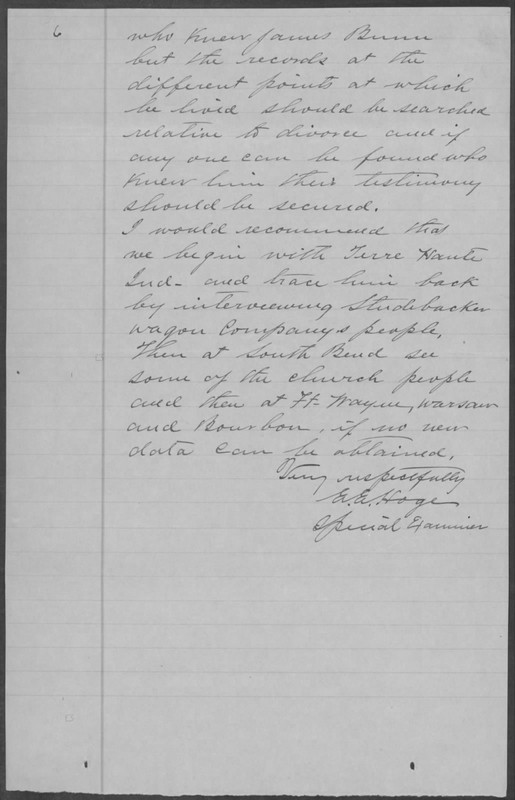 6
who knew James Bunn
but the records at the
different points at which
he lived should be searched
relative to divorce and if
any one can be found who
knew him their testimony
should be secured.
I would recommend that
we begin with Terre Haute
Ind- and trace him back
by interviewing Studebacker
wagon Companys people,
Then at South Bend see
some of the church people
and then at Ft- Wayne, Warsaw
and Bourbon, if no new
data can be obtained.
Very respectfully
E.E. Hoge
Special Examiner